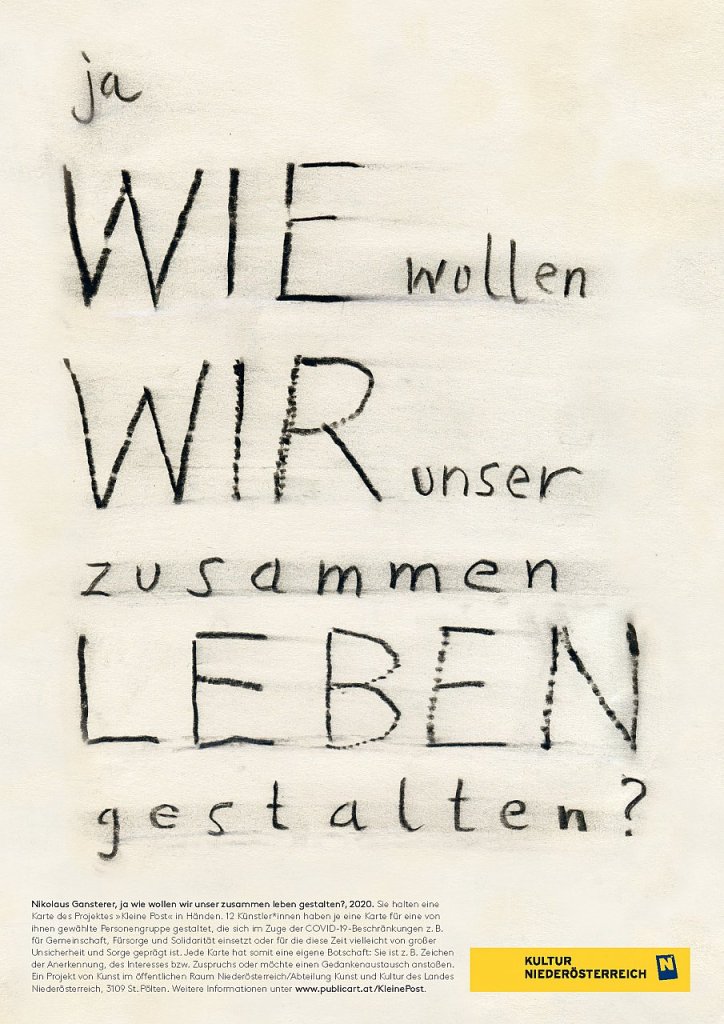 ja
WIE wollen
WIR unser
zusammen
LEBEN
gestalten?
Nikolaus Gansterer, ja wie wollen wir unser zusammen leben gestalten?, 2020. Sie halten eine
Karte des Projektes »Kleine Post« in Händen. 12 Künstler*innen haben je eine Karte für eine von
ihnen gewählte Personengruppe gestaltet, die sich im Zuge der COVID-19-Beschränkungen z. B.
für Gemeinschaft, Fürsorge und Solidarität einsetzt oder für die diese Zeit vielleicht von großer
Unsicherheit und Sorge geprägt ist. Jede Karte hat somit eine eigene Botschaft: Sie ist z. B. Zeichen
der Anerkennung, des Interesses bzw. Zuspruchs oder möchte einen Gedankenaustausch anstoßen.
Ein Projekt von Kunst im öffentlichen Raum Niederösterreich/Abteilung Kunst und Kultur des Landes
Niederösterreich, 3109 St. Pölten. Weitere Informationen unter www.publicart.at/KleinePost.
KULTUR
NIEDERÖSTERREICH N